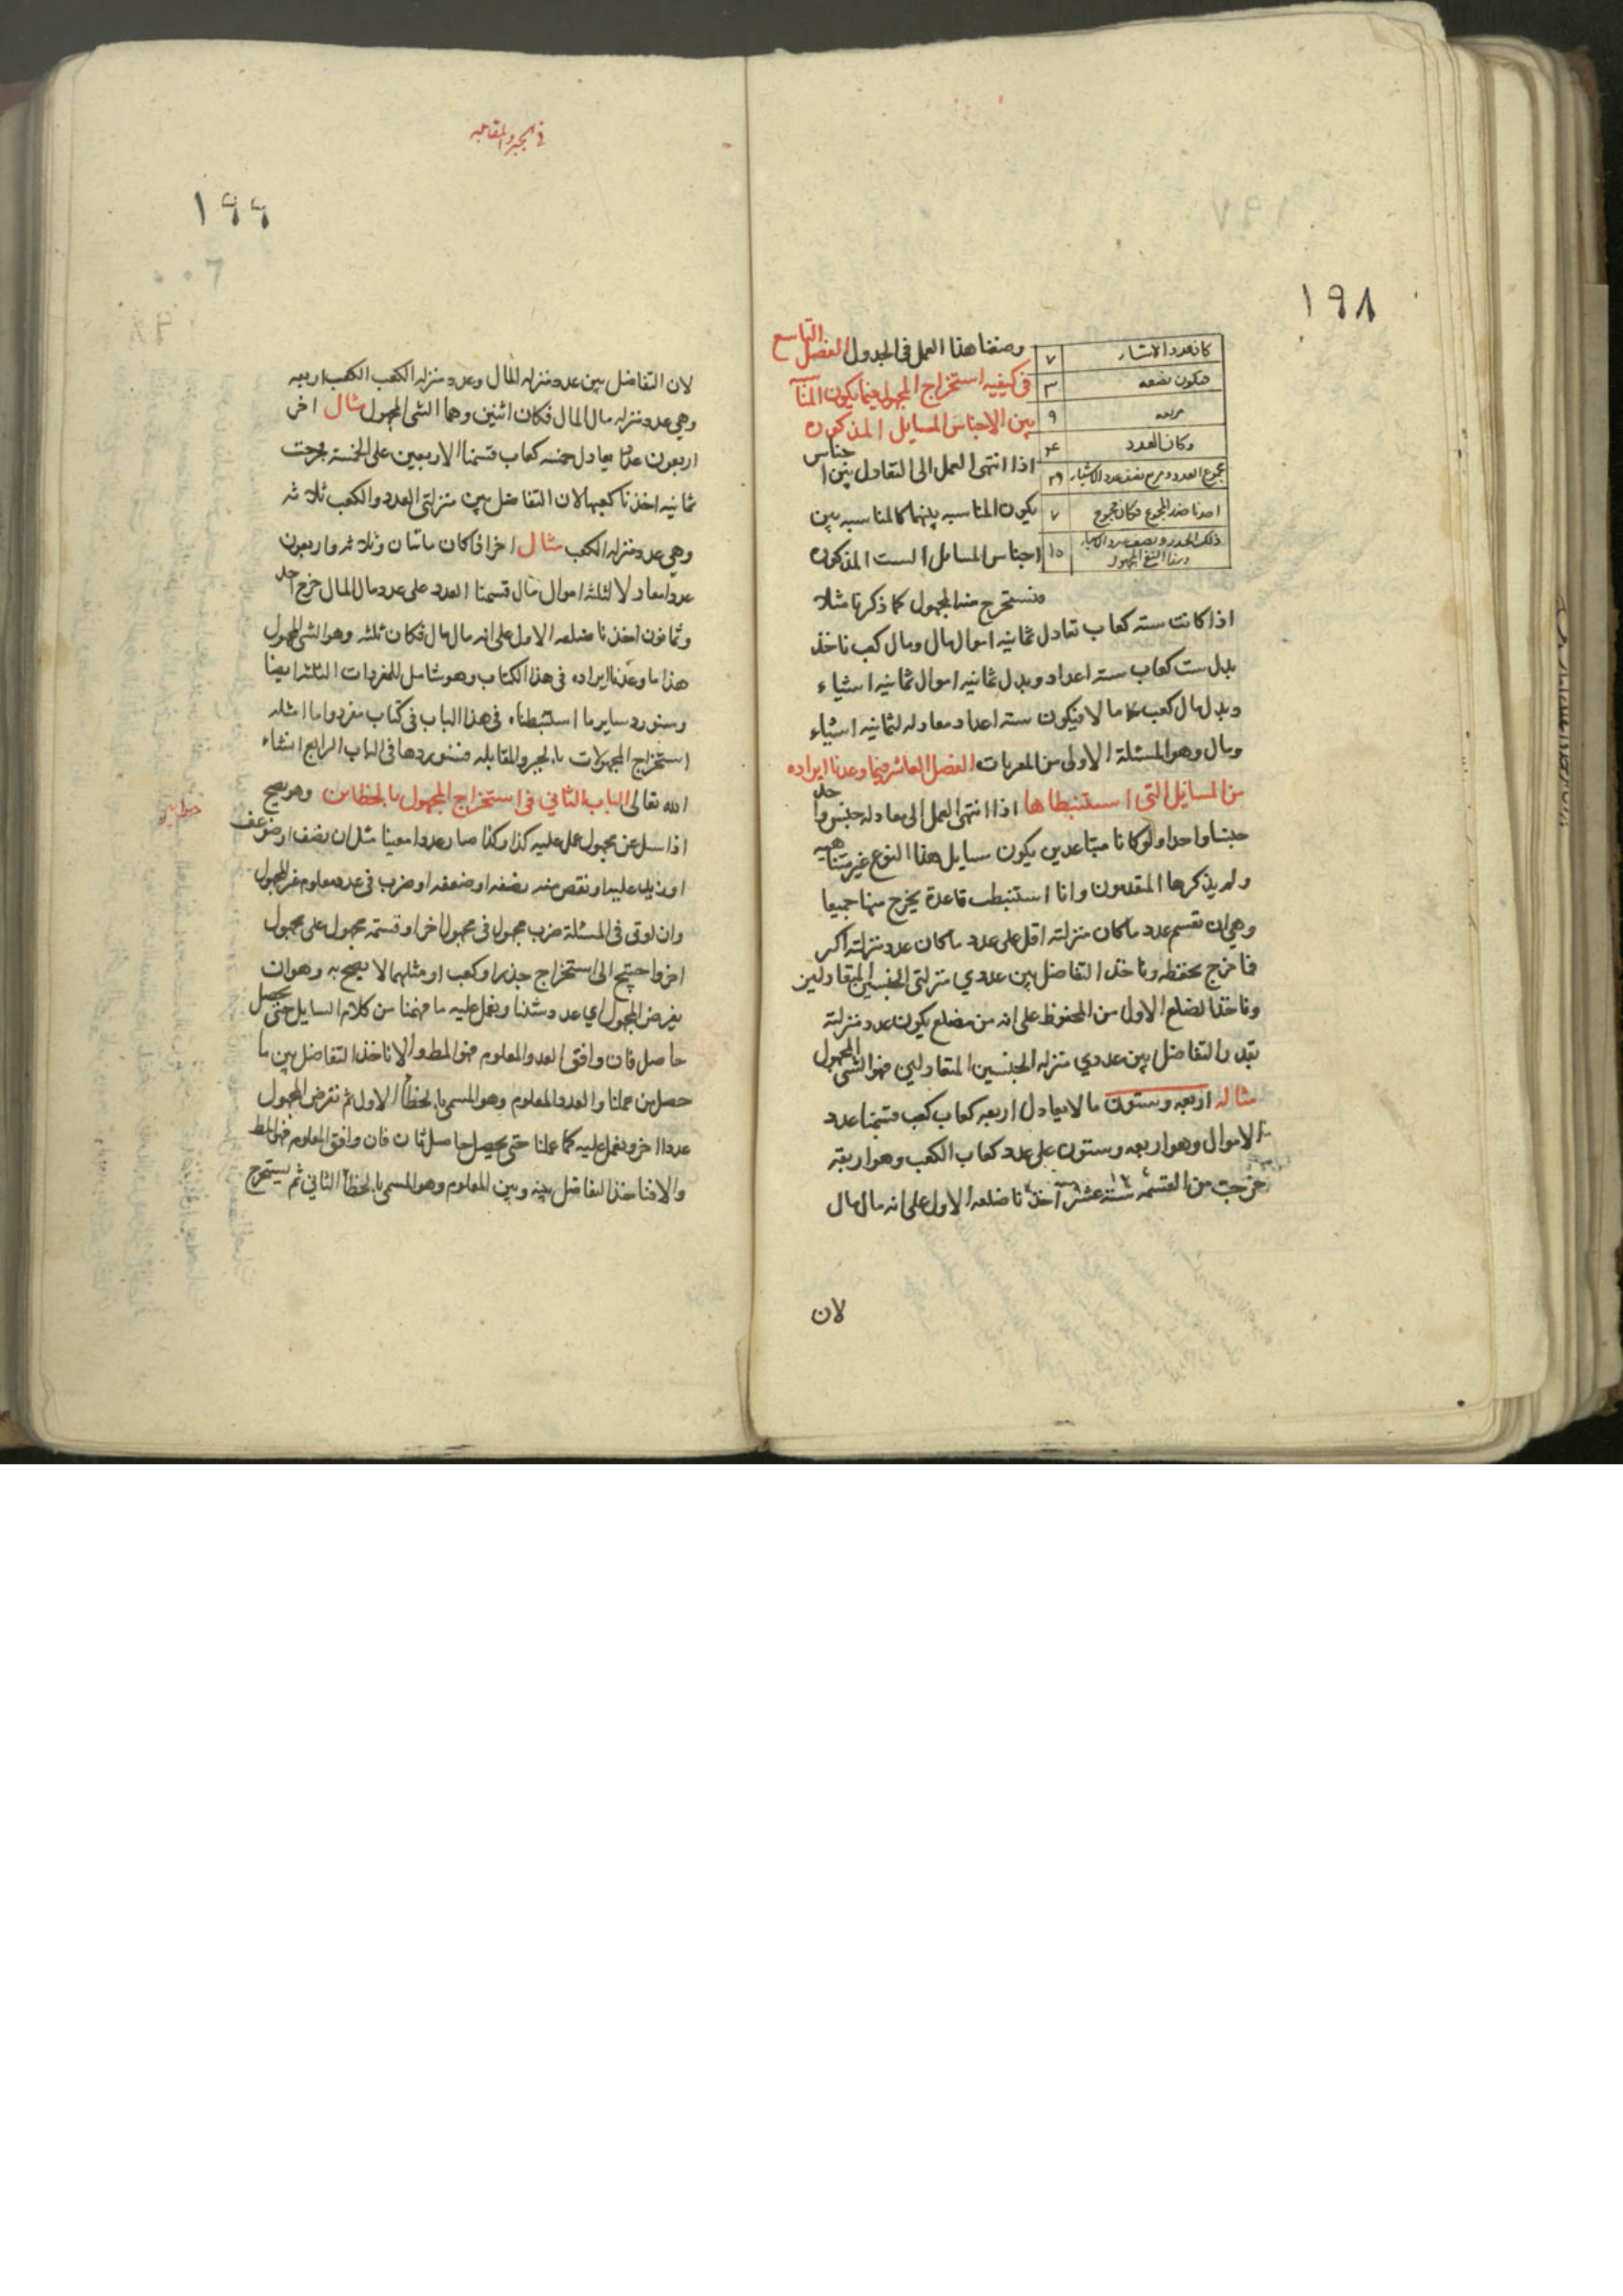 ١٩٨
كان عدد الاشياء ٧
فيكون نصفه ٣
مربعه ٩
وكان العدد ۴٠
مجموع العدد ومربع نصف عدد الاشياء ۴٩
اخذنا جذر المجموع فكان مجموع ٧
ذلك الجذر ونصف عدد الاشياء ١٠
وهذا الشئ المجهول
وضعنا هذا العمل فى الجدول الفصل التاسع
فى كيفيه استخراج المجهول فيما يكون المناسبه
بين الاجناس المسايل المذكوره
اذا انتهى العمل الى التعادل بين اجناس
يكون المناسبه بينهما كالمناسبه بين
اجناس المسايل الست المذكوره
فنستخرج منه المجهول كما ذكرنا مثلا
اذا كانت سته كعاب تعادل ثمانيه اموال مال ومال كعب ناخذ
بدل ست كعاب سته اعداد وبدل ثمانيه اموال ثمانيه اشياء
وبدل مال كعب مالا فيكون سته اعداد معادله لثمانيه اشياء
ومال وهو المسئلة الاولى من المقترنات الفصل العاشر فيما وعدنا ايراده
من المسايل التى استنبطناها اذا انتهى العمل الى معادله جنس واحد
جنسا واحدا ولو كانا متباعدين يكون مسايل هذا النوع غير متناهيه
ولم يذكرها المتقدمون وانا استنبطت قاعدة يخرج منها جميعا
وهى ان نقسم عدد ما كان منزلته اقل على عدد ما كان عدد منزلته اكبر
فما خرج نحفظه وناخذ التفاضل بين عددي منزلتى الجنسين المتعادلين
وناخذ الضلع الاول من المحفوظ على انه من مضلع يكون عدد منزلته
بقدر التفاضل بين عددي منزله الجنسين المتعادلين فهو الشى المجهول
مثاله اربعه وستون مالا يعادل اربعه كعاب كعب قسمنا عدد
الاموال وهو اربعه وستون على عدد كعاب الكعب وهو اربعة
خرجت من القسمه ستة عشر اخذنا ضلعه الاول على انه مال مال
لان
فى الجبر والمقابله
١٩٩
لان التفاضل بين عدد منزله المال وعدد منزله الكعب الكعب اربعه
وهى عدد منزله مال المال فكان اثنين وهما الشى المجهول مثال اخر
اربعون عددا يعادل خمسه كعاب قسمنا الاربعين على الخمسة فخرجت
ثمانيه اخذنا كعبها لان التفاضل بين منزلتى العدد والكعب ثلاثه
وهى عدد منزله الكعب مثال اخر اذا كان مائتان وثلاثه واربعون
عددا معادلا لثلثه اموال مال قسمنا العدد على عدد مال المال خرج احد
وثمانون اخذنا ضلعه الاول على انه مال مال فكان ثلثه وهو الشى المجهول
هذا ما وعدنا ايراده فى هذا الكتاب وهو شامل للمفردات الثلثه ايضا
وسنورد ساير ما استنبطناه فى هذا الباب فى كتاب مفرد واما امثله
استخراج المجهولات بالجبر والمقابله فسنوردها فى الباب الرابع انشاء
الله تعالى الباب الثانى فى استخراج المجهول بالخطاين وهو يصح
خطايين
اذا سئل عن مجهول عمل عليه كذا وكذا صار عددا معينا مثل ان نصف او ضوعف
او زيد عليه او نقص منه نصفه او ضعفه او ضرب فى عدد معلوم غير المجهول
وان لوقى فى المسئلة ضرب مجهول فى مجهول اخر او قسمة مجهول على مجهول
اخر واحتيج الى استخراج جذر او كعب او مثلهما لا يصح به وهو ان
يفرض المجهول اي عدد شئنا ونعمل عليه ما فهمنا من كلام السايل حتى يحصل
حاصل فان وافق العدد المعلوم فهو المط والا ناخذ التفاضل بين ما
حصل من عملنا والعدد المعلوم وهو المسمى بالخطأ الاول ثم نفرض المجهول
عددا اخر ونعمل عليه كما عملنا حتى يحصل حاصل ثان فان وافق المعلوم فهو المط
والا فناخذ التفاضل بينه وبين المعلوم وهو المسمى بالخطأ الثانى ثم يستخرج